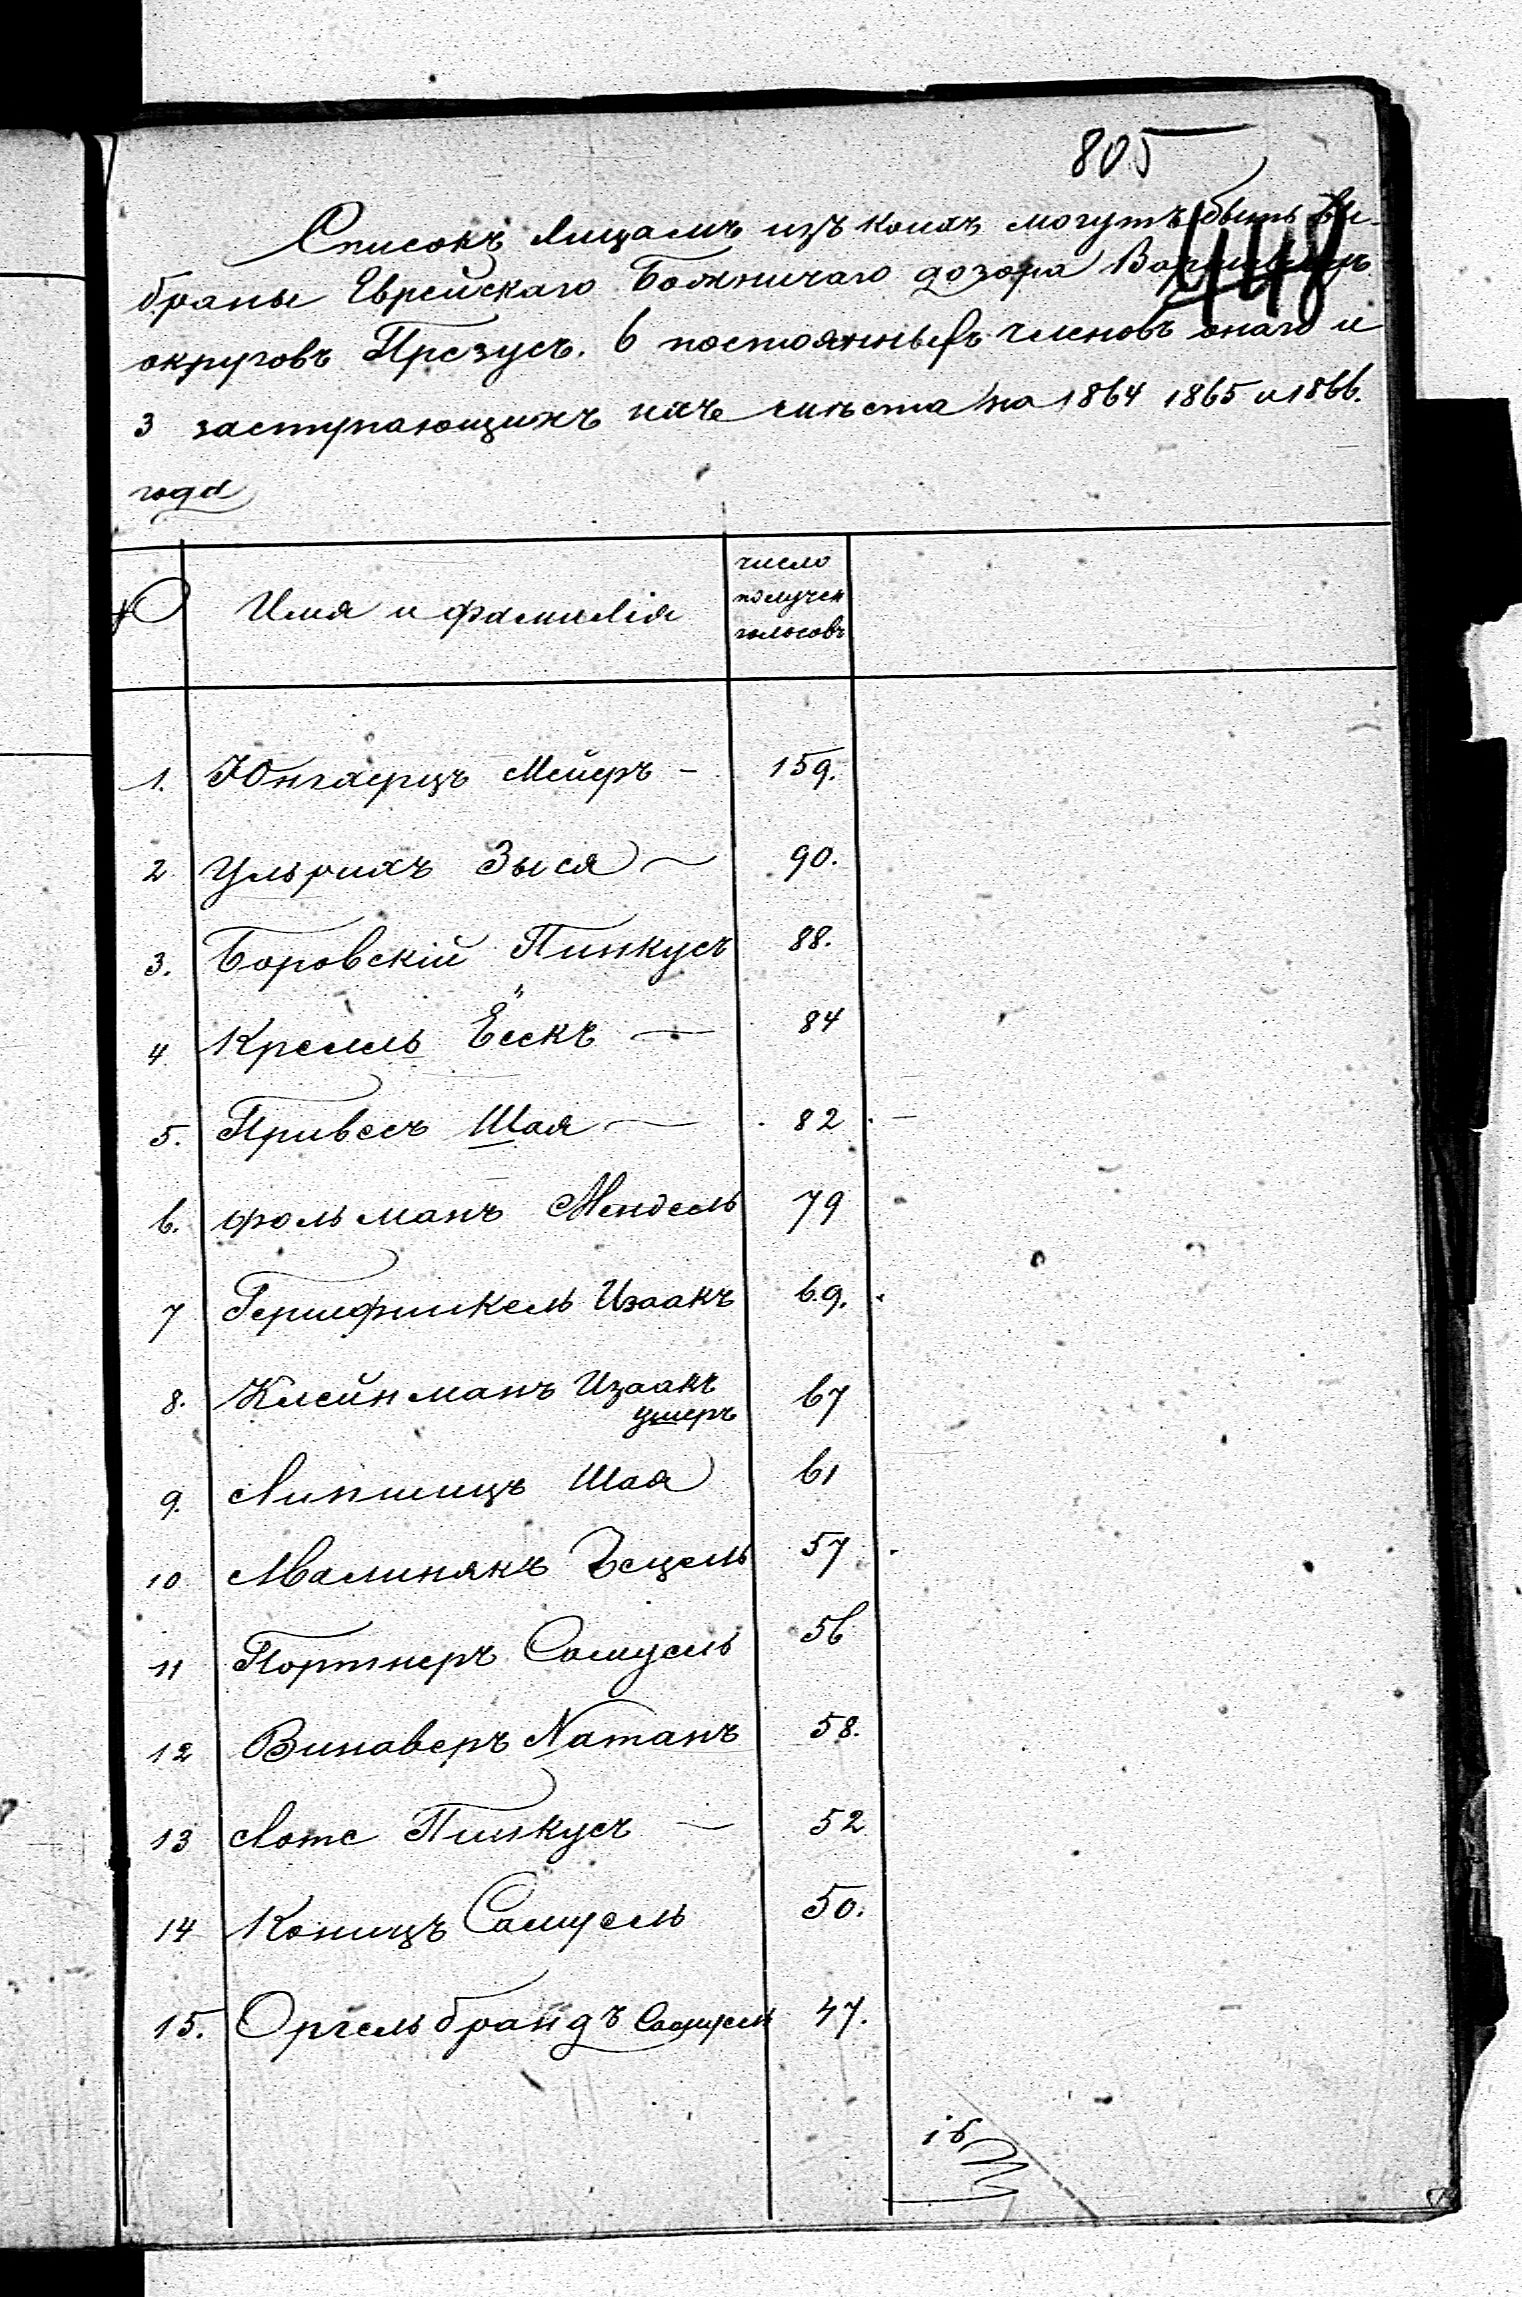 805
448
Списокъ лицамъ изъ коихъ могутъ быть вы-
браны Еврейскаго Божничаго дозора
округовъ Презусъ. 6 постоянныхъ членовъ онаго и
3 заступающихъ ихъ мѣста на 1864 1865 и 1866.
года
№ Имя и фамилія число
получен
голосовъ
1. Юнггерцъ Мейеръ - 159.
2 Ульрихъ Зыся — 90.
3. Боровскій Пинкусъ 88.
4 Кремль Ёсекъ — 84
5. Привесъ Шая — 82
6. Фольманъ Мендель 79
7 Гершфинкель Изаакъ 69.
8. Клейнманъ Изаакъ 67
умеръ
9. Липшицъ Шая 61
10 Малинякъ Гецель 57
11 Портнеръ Самуель 56
12 Винаверъ Натанъ 58.
13 Лоте Пинкусъ — 52
14 Коницъ Самуель 50.
15. Оргельбрандъ Самуель 47.